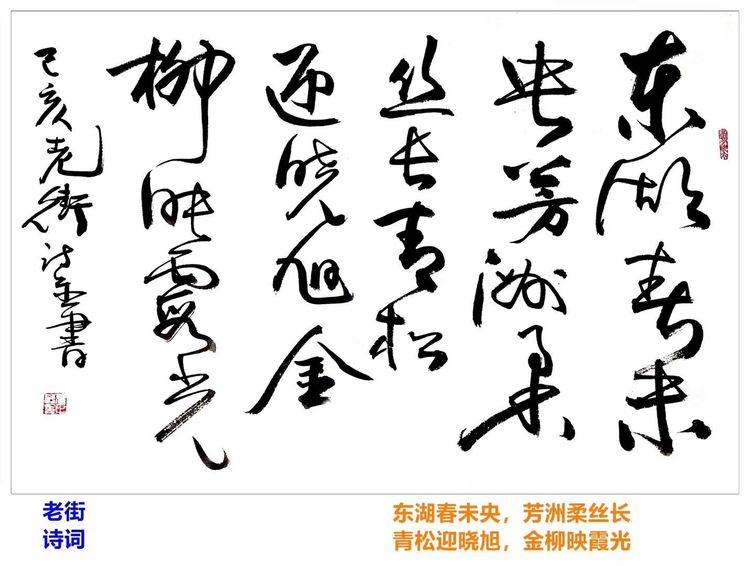 东湖春未
央芳洲柔
丝长青松
迎晓旭金
柳映霞光
己亥老街诗書
老街
诗词
东湖春未央，芳洲柔丝长
青松迎晓旭，金柳映霞光